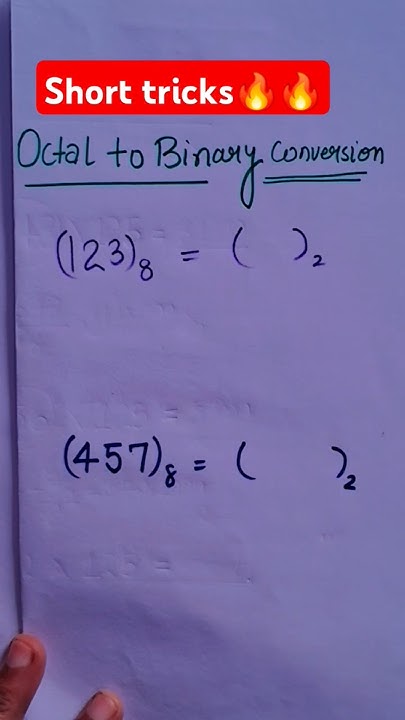 Short tricks🔥🔥
Octal to Binary Conversion
(123)₈ = (    )₂
(457)₈ = (    )₂